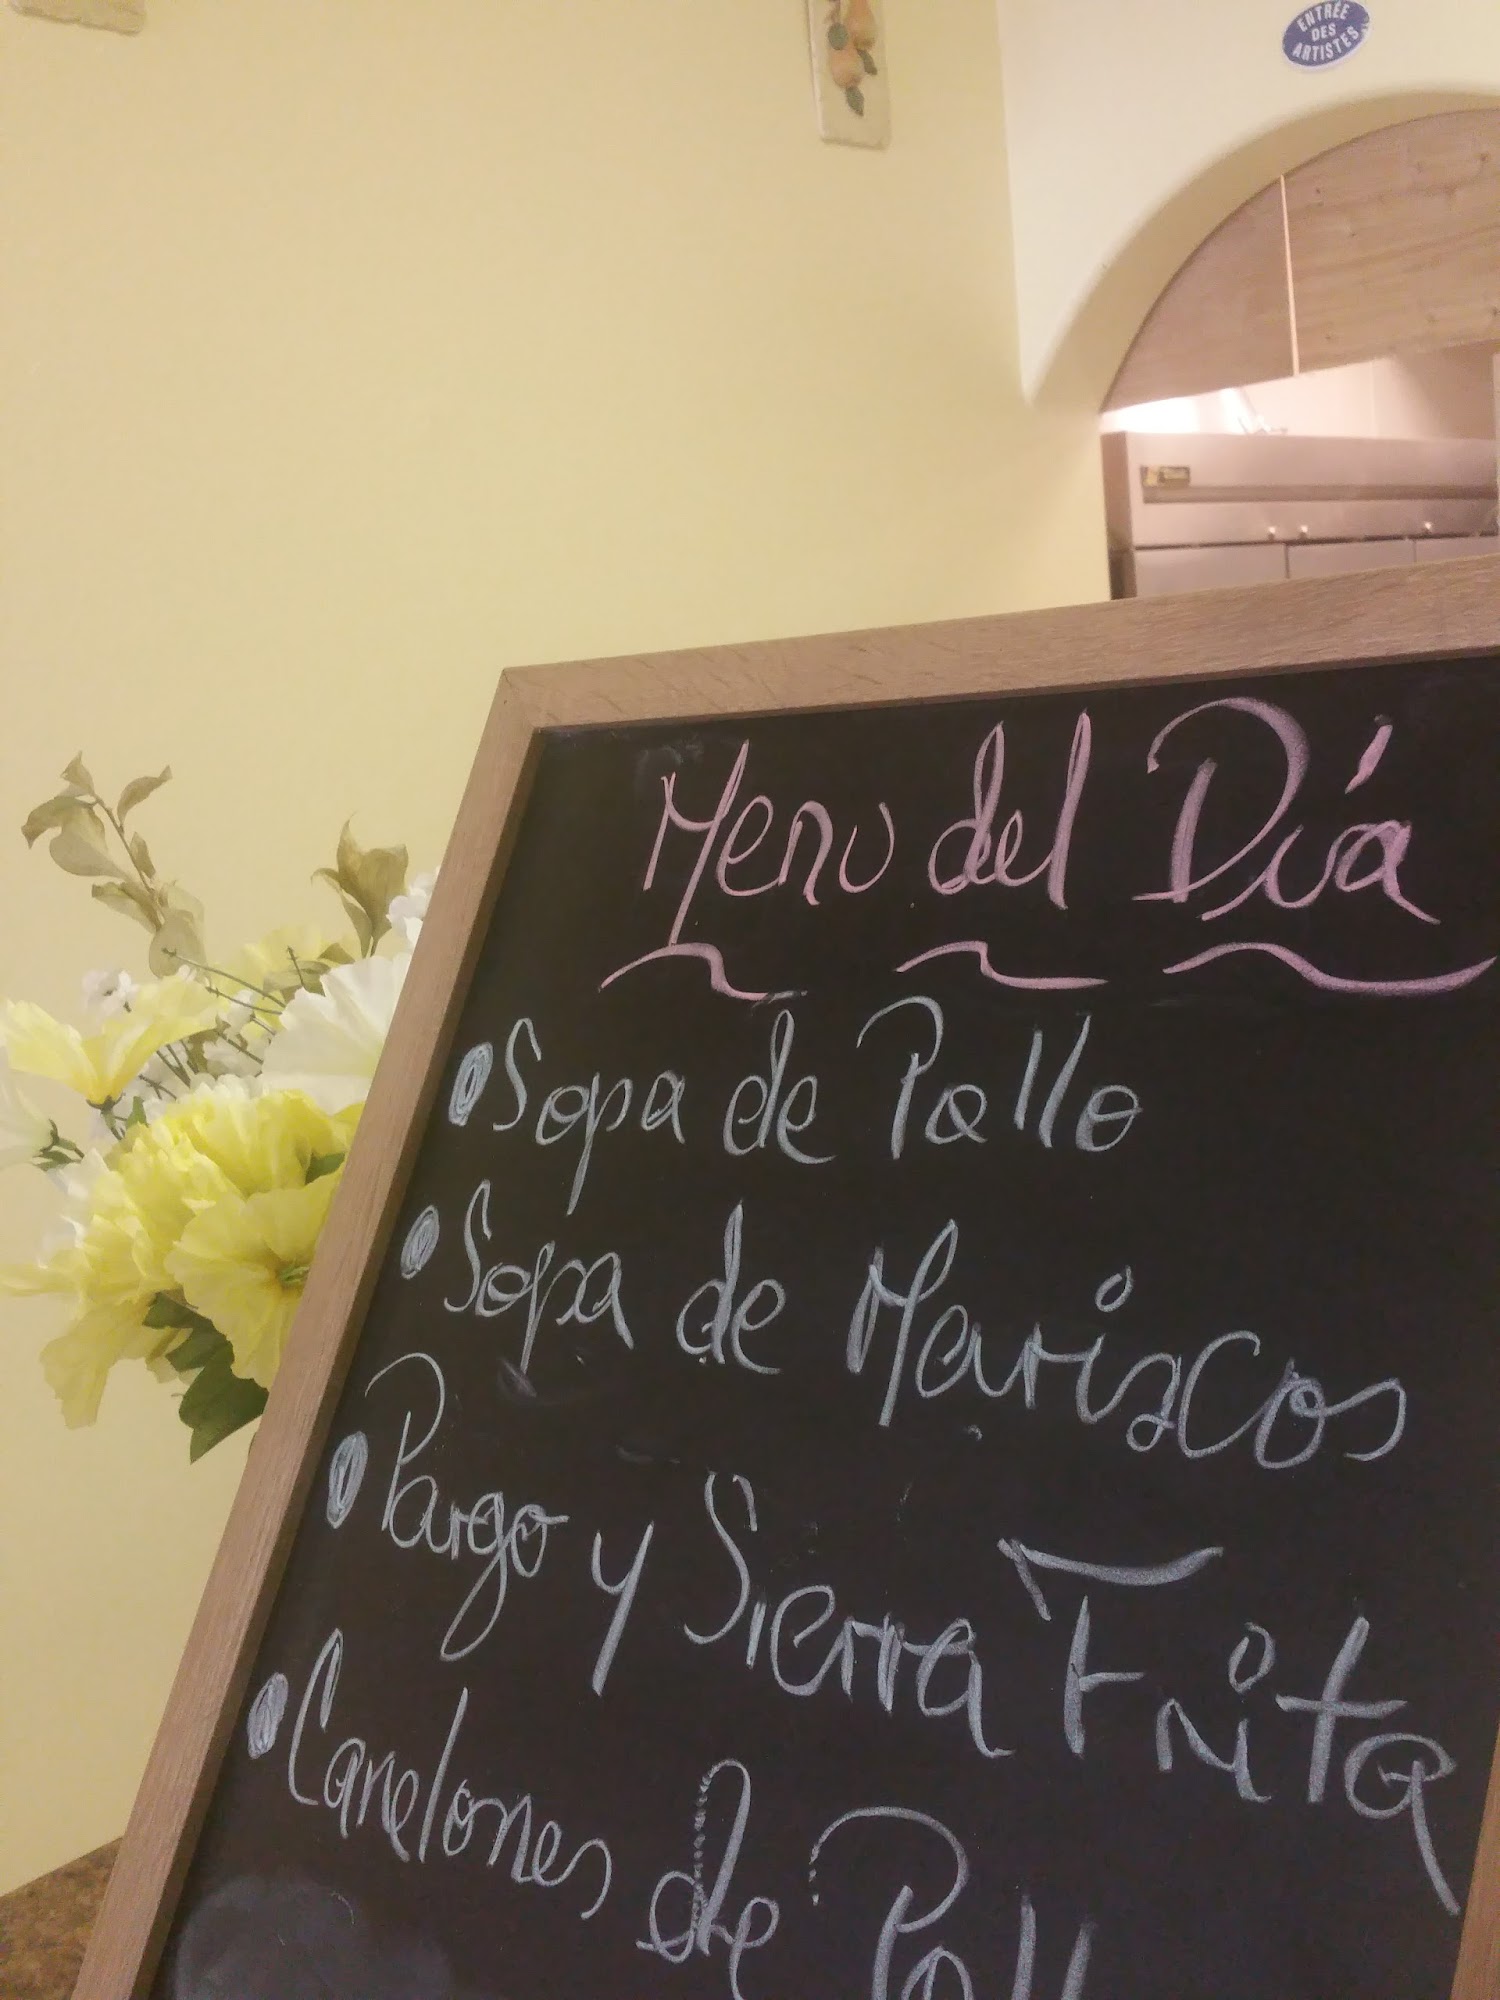 ENTRÉE
DES
ARTISTES
Menu del Día
Sopa de Pollo
Sopa de Mariscos
Pargo y Sierra Frita
Canelones de Poll